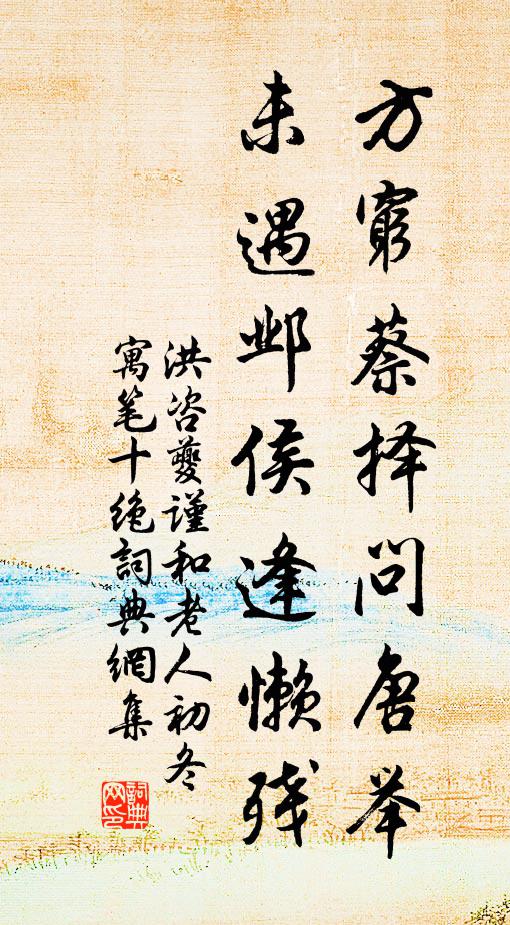 方窮蔡择问唐举
未遇邺侯逢懒残
洪咨夔谨和老人初冬
寓笔十绝詞典網集
詞典
网印